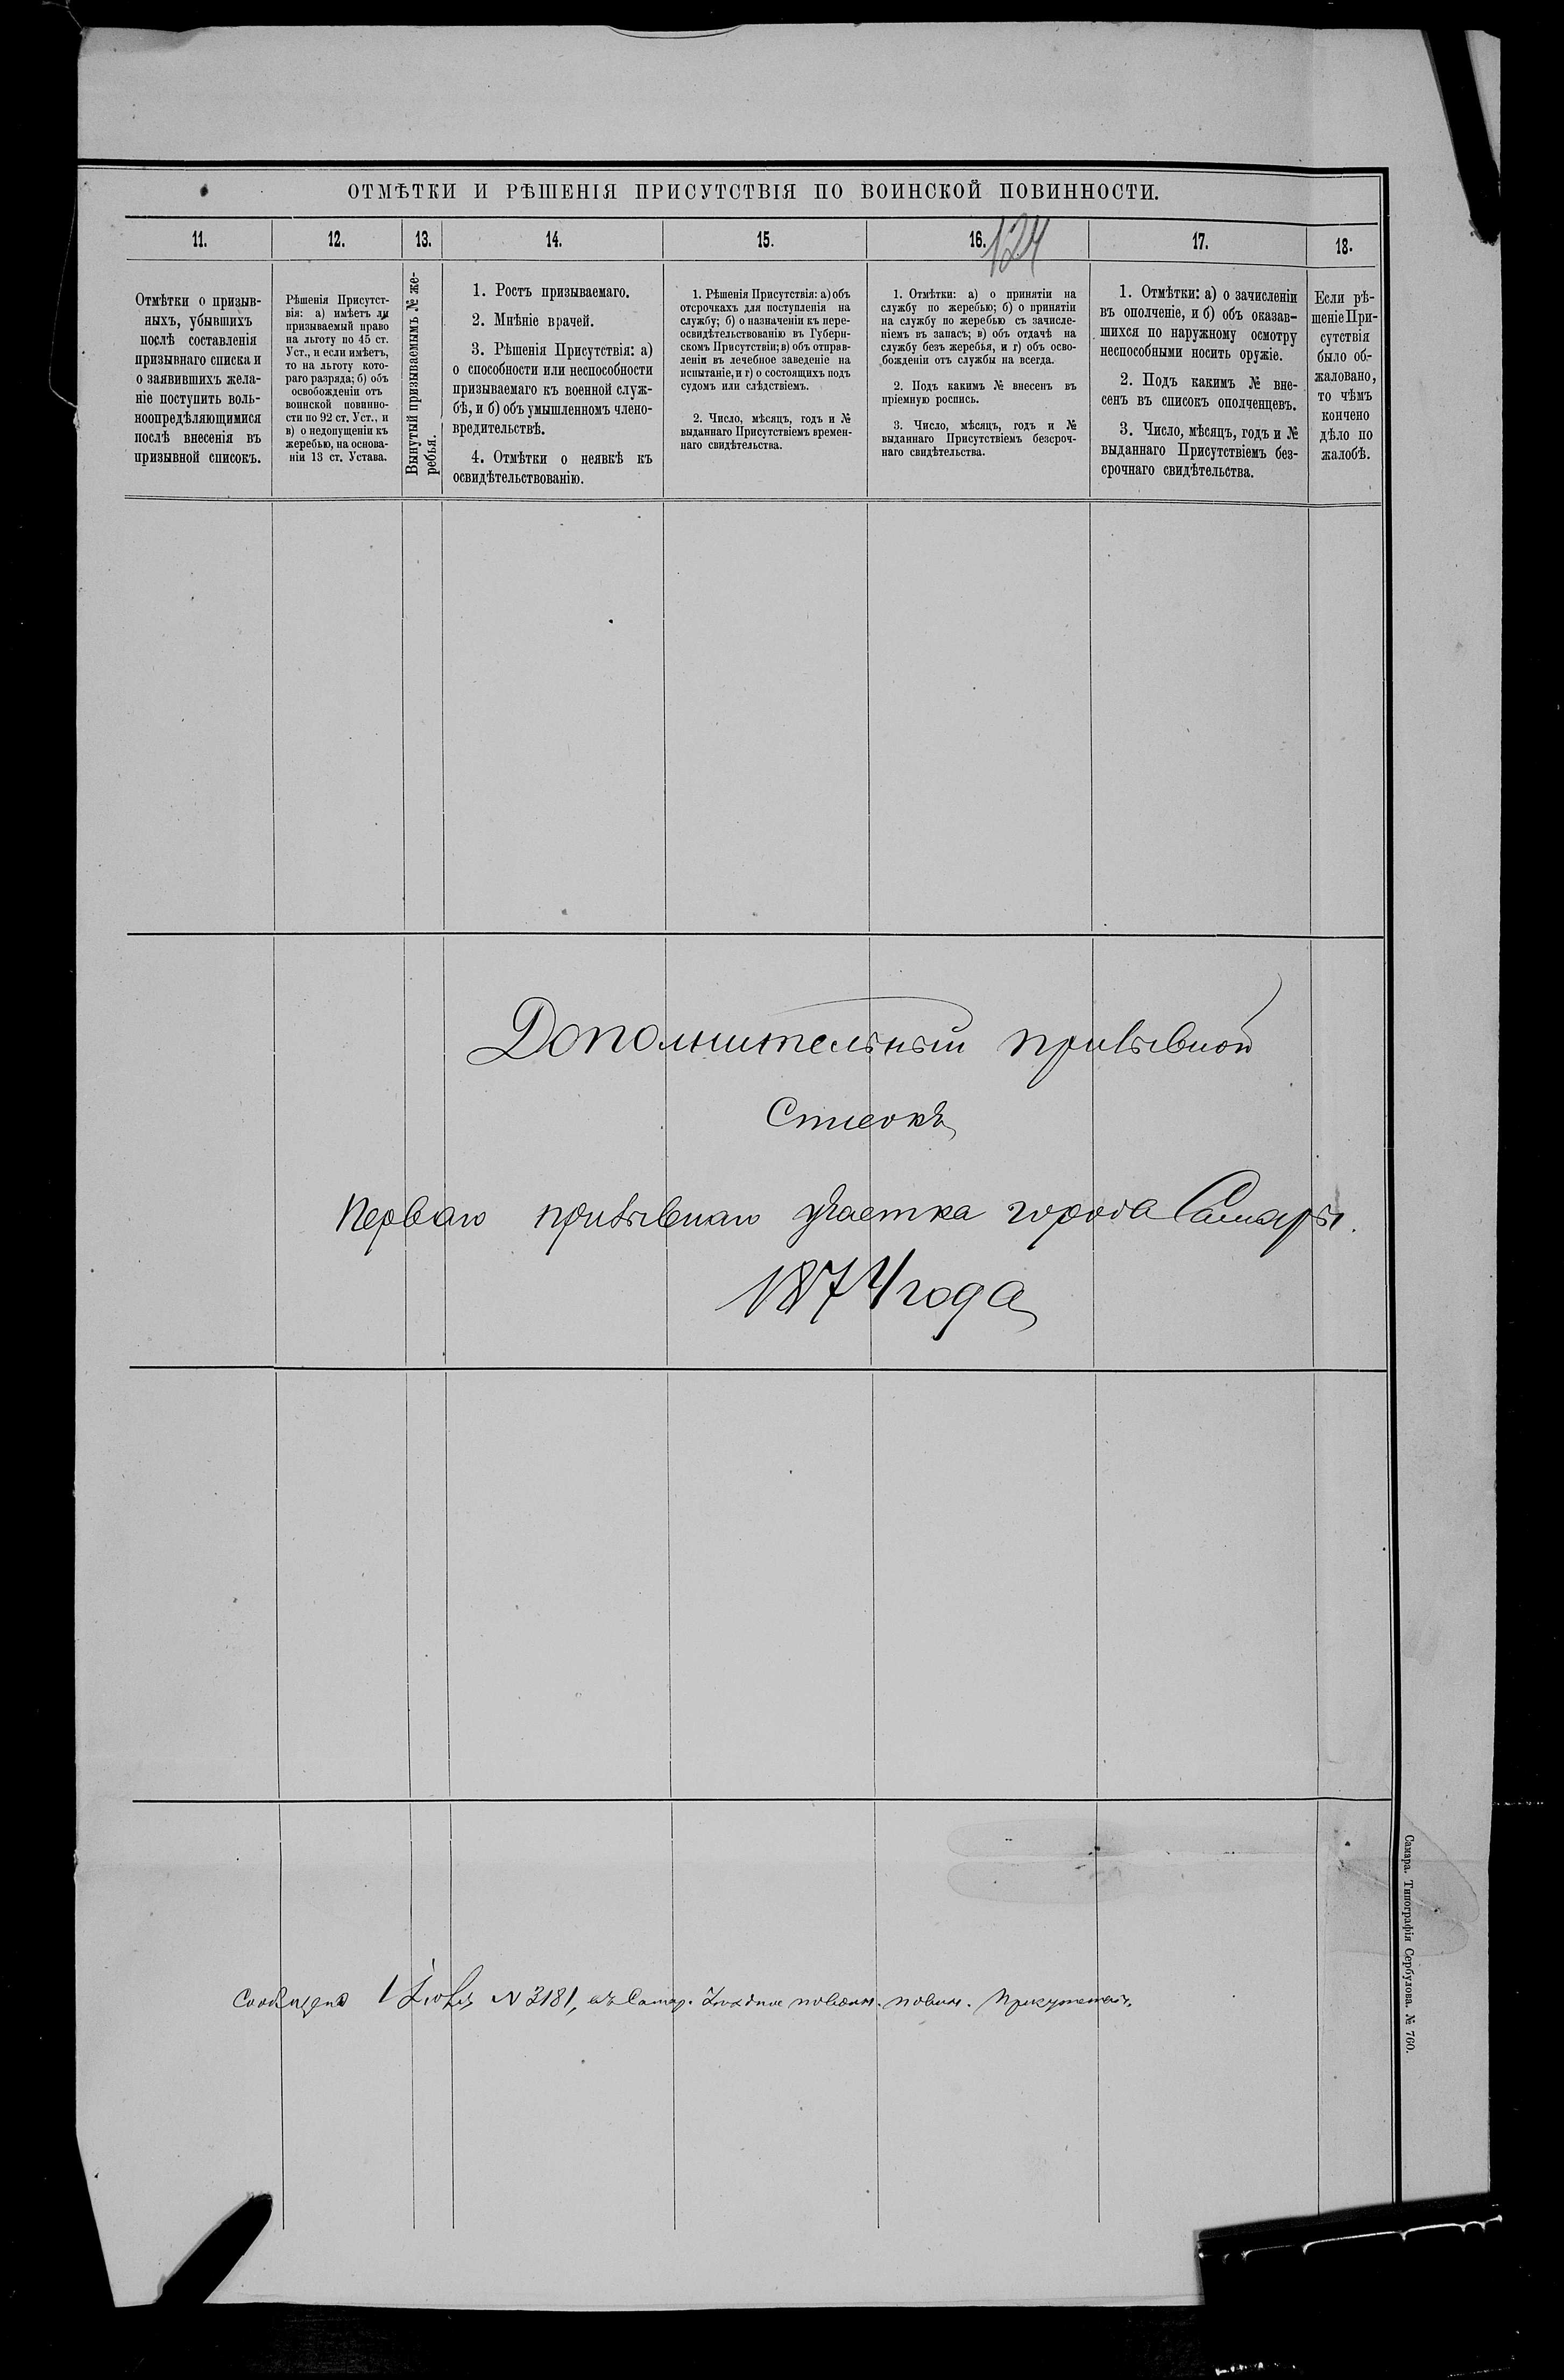 ОТМѢТКИ И РѢШЕНІЯ ПРИСУТСТВІЯ ПО ВОИНСКОЙ ПОВИННОСТИ.
124
11.
12.
13.
14.
15.
16.
17.
18.
Отмѣтки о призыв-
ныхъ, убывшихъ
послѣ составленія
призывнаго списка и
о заявившихъ жела-
ніе поступить воль-
ноопредѣляющимися
послѣ внесенія въ
призывной списокъ.
Рѣшенія Присутст-
вія: а) имѣетъ ли
призываемый право
на льготу по 45 ст.
Уст., и если имѣетъ,
то на льготу кото-
раго разряда; б) объ
освобожденіи отъ
воинской повинно-
сти по 92 ст. Уст., и
в) о недопущеніи къ
жеребью, на основа-
ніи 13 ст. Устава.
Вынутый призываемымъ № же-
ребья.
1. Ростъ призываемаго.
2. Мнѣніе врачей.
3. Рѣшенія Присутствія: а)
о способности или неспособности
призываемаго къ военной служ-
бѣ, и б) объ умышленномъ члено-
вредительствѣ.
4. Отмѣтки о неявкѣ къ
освидѣтельствованію.
1. Рѣшенія Присутствія: а) объ
отсрочкахъ для поступленія на
службу; б) о назначеніи къ пере-
освидѣтельствованію въ Губерн-
скомъ Присутствіи; в) объ отправ-
леніи въ лечебное заведеніе на
испытаніе, и г) о состоящихъ подъ
судомъ или слѣдствіемъ.
2. Число, мѣсяцъ, годъ и №
выданнаго Присутствіемъ времен-
наго свидѣтельства.
1. Отмѣтки: а) о принятіи на
службу по жеребью; б) о принятіи
на службу по жеребью съ зачисле-
ніемъ въ запасъ; в) объ отдачѣ на
службу безъ жеребья, и г) объ осво-
божденіи отъ службы на всегда.
2. Подъ какимъ № внесенъ въ
пріемную роспись.
3. Число, мѣсяцъ, годъ и №
выданнаго Присутствіемъ безсроч-
наго свидѣтельства.
1. Отмѣтки: а) о зачисленіи
въ ополченіе, и б) объ оказав-
шихся по наружному осмотру
неспособными носить оружіе.
2. Подъ какимъ № вне-
сенъ въ списокъ ополченцевъ.
3. Число, мѣсяцъ, годъ и №
выданнаго Присутствіемъ без-
срочнаго свидѣтельства.
Если рѣ-
шеніе При-
сутствія
было об-
жаловано,
то чѣмъ
кончено
дѣло по
жалобѣ.
Дополнительный призывной
Списокъ
Перваго призывнаго участка города Самары.
1874 года
Сообщено 1 N 3181, въ Самар. Уѣздное повоин. повин. Присутствіе.
Самара. Типографія Сербулова. № 760.